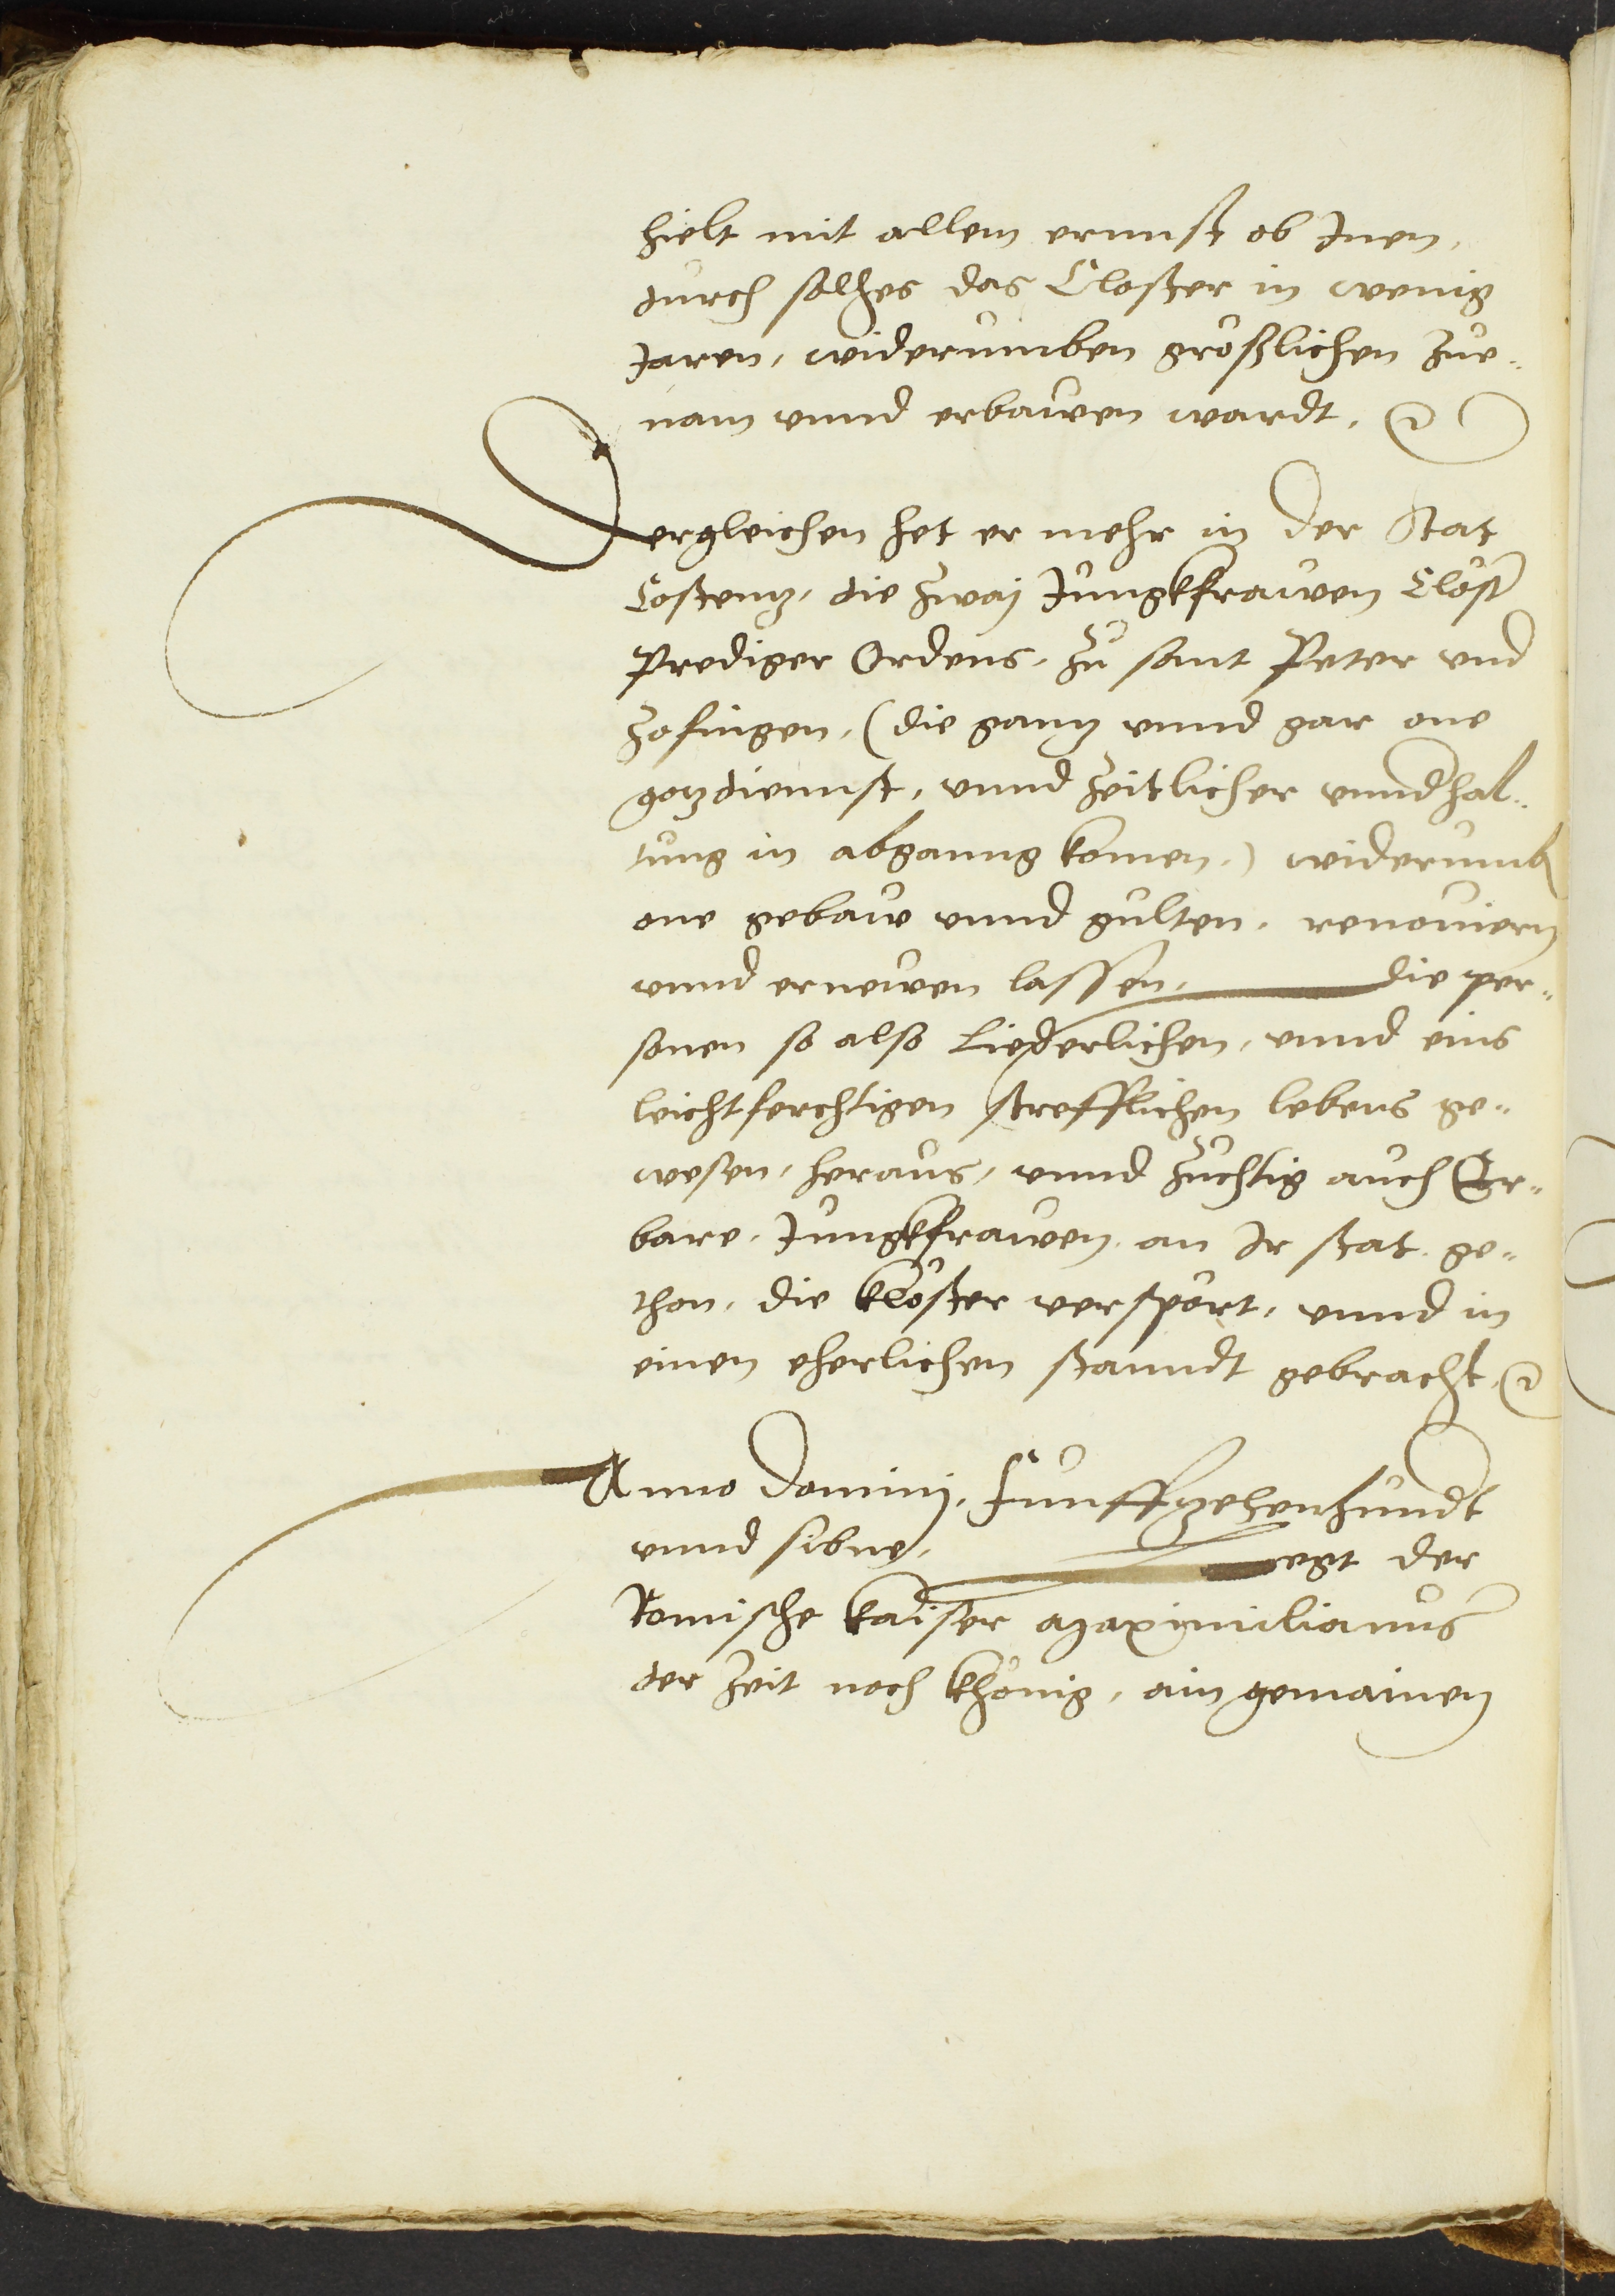 hielt mit allem ernnst ob Inen,
durch solhes das Closter in wenig
Jaren, widerumben größlichen zue„
nam vnnd erbawen wardt, ꝛc
Dergleichen het er mehr in der Stat
Costentz, die zwaj Jungkfrawen Clöst
Prediger Ordens, zů sant Peter vnd
Zofingen, (die gantz vnnd gar one
gotzdiennst, vnnd zeitlicher vnndhal„
tung in abganng komen,) widerumb
one gebaw vnnd gulten, renouiern
vnnd ernewen lassen, die per„
sonen so also Liederlichen, vnnd eins
leichtferchtigen strefflichen lebens ge„
wesen, heraus, vnnd züchtig auch Er„
bare, Jungkfrawen, an Ir stat, ge„
thon, die Klöster verspört, vnnd in
einen eherlichen stanndt gebracht, ꝛc
Anno Dominj, Funffzehenhundt
vnnd sibne, legt der
Romische Kaiser Maximilianus
der Zeit noch Khönig, ain gemainen